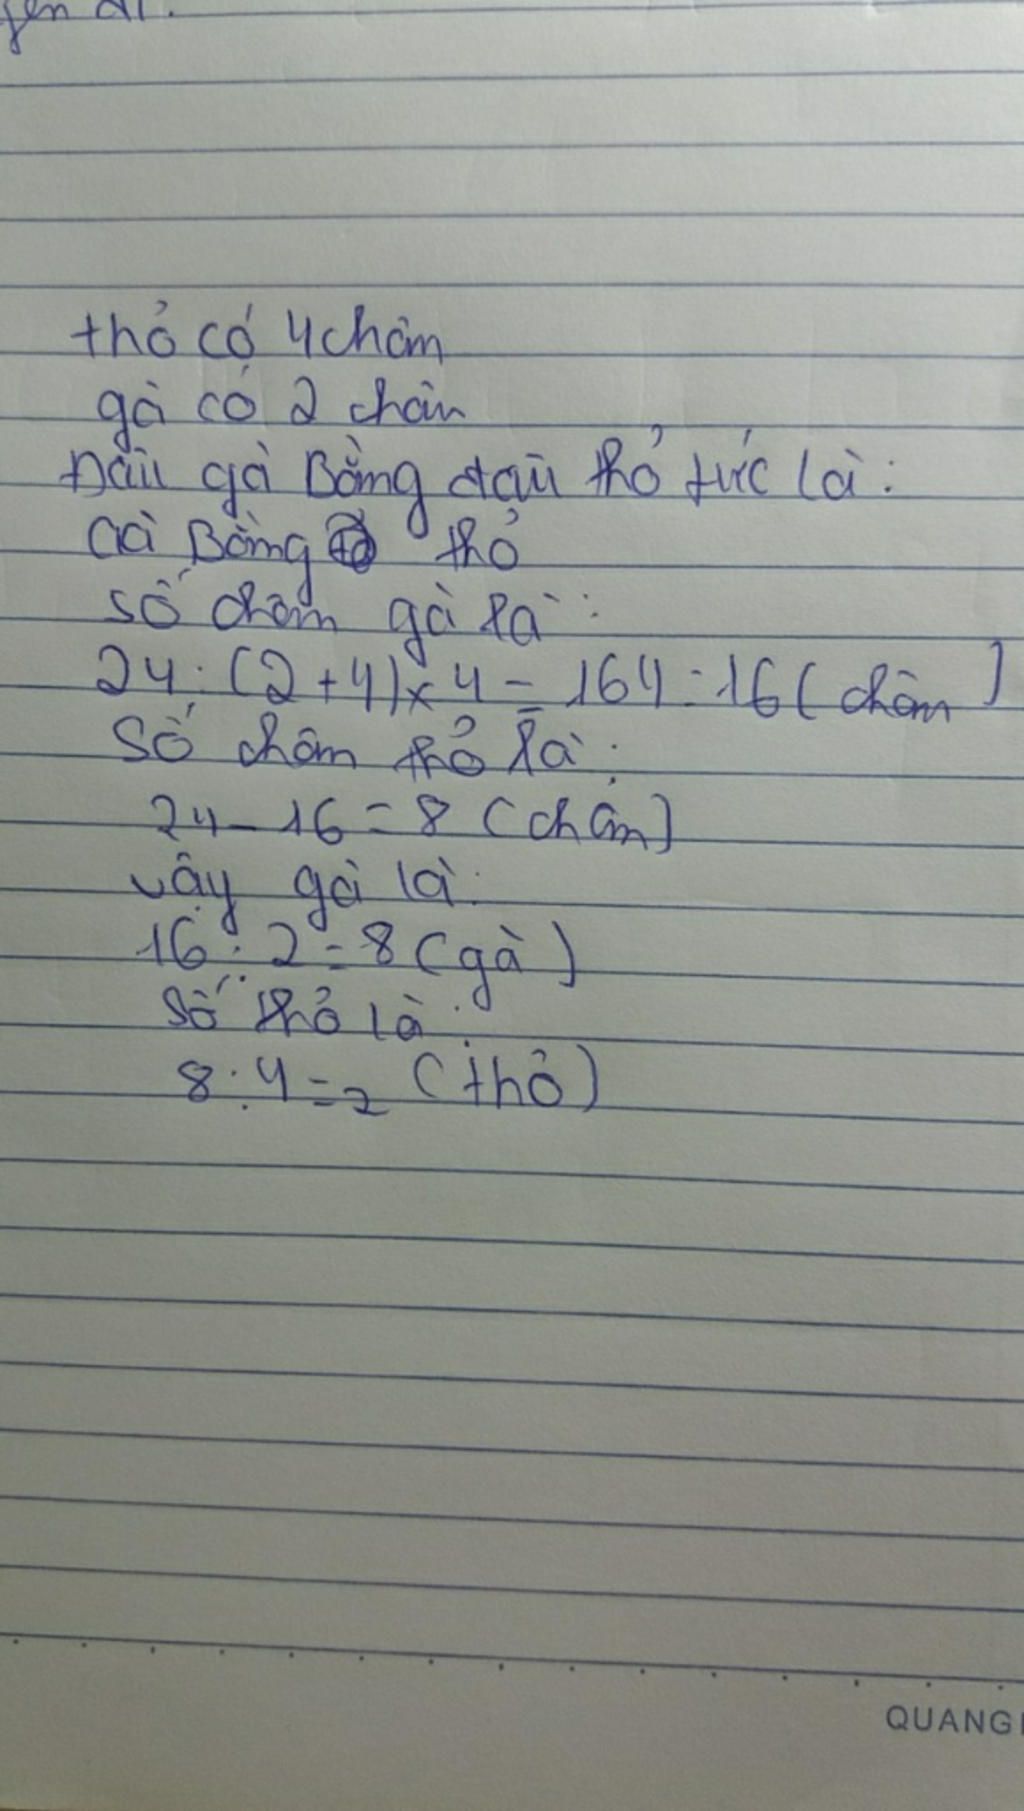 thỏ có 4 chân
gà có 2 chân
Đầu gà Bằng đầu thỏ tức là:
Gà Bằng thỏ
số chân gà là:
24:(2+4)x4=164=16(chân)
Số chân thỏ là:
24-16=8 (chân)
vậy gà là:
16:2=8(gà)
Số thỏ là:
8:4=2 (thỏ)
QUANG